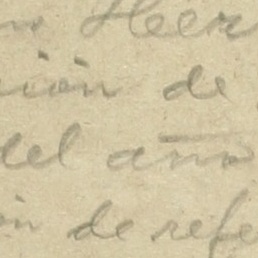 Heer
ión de
del año
ón de refe